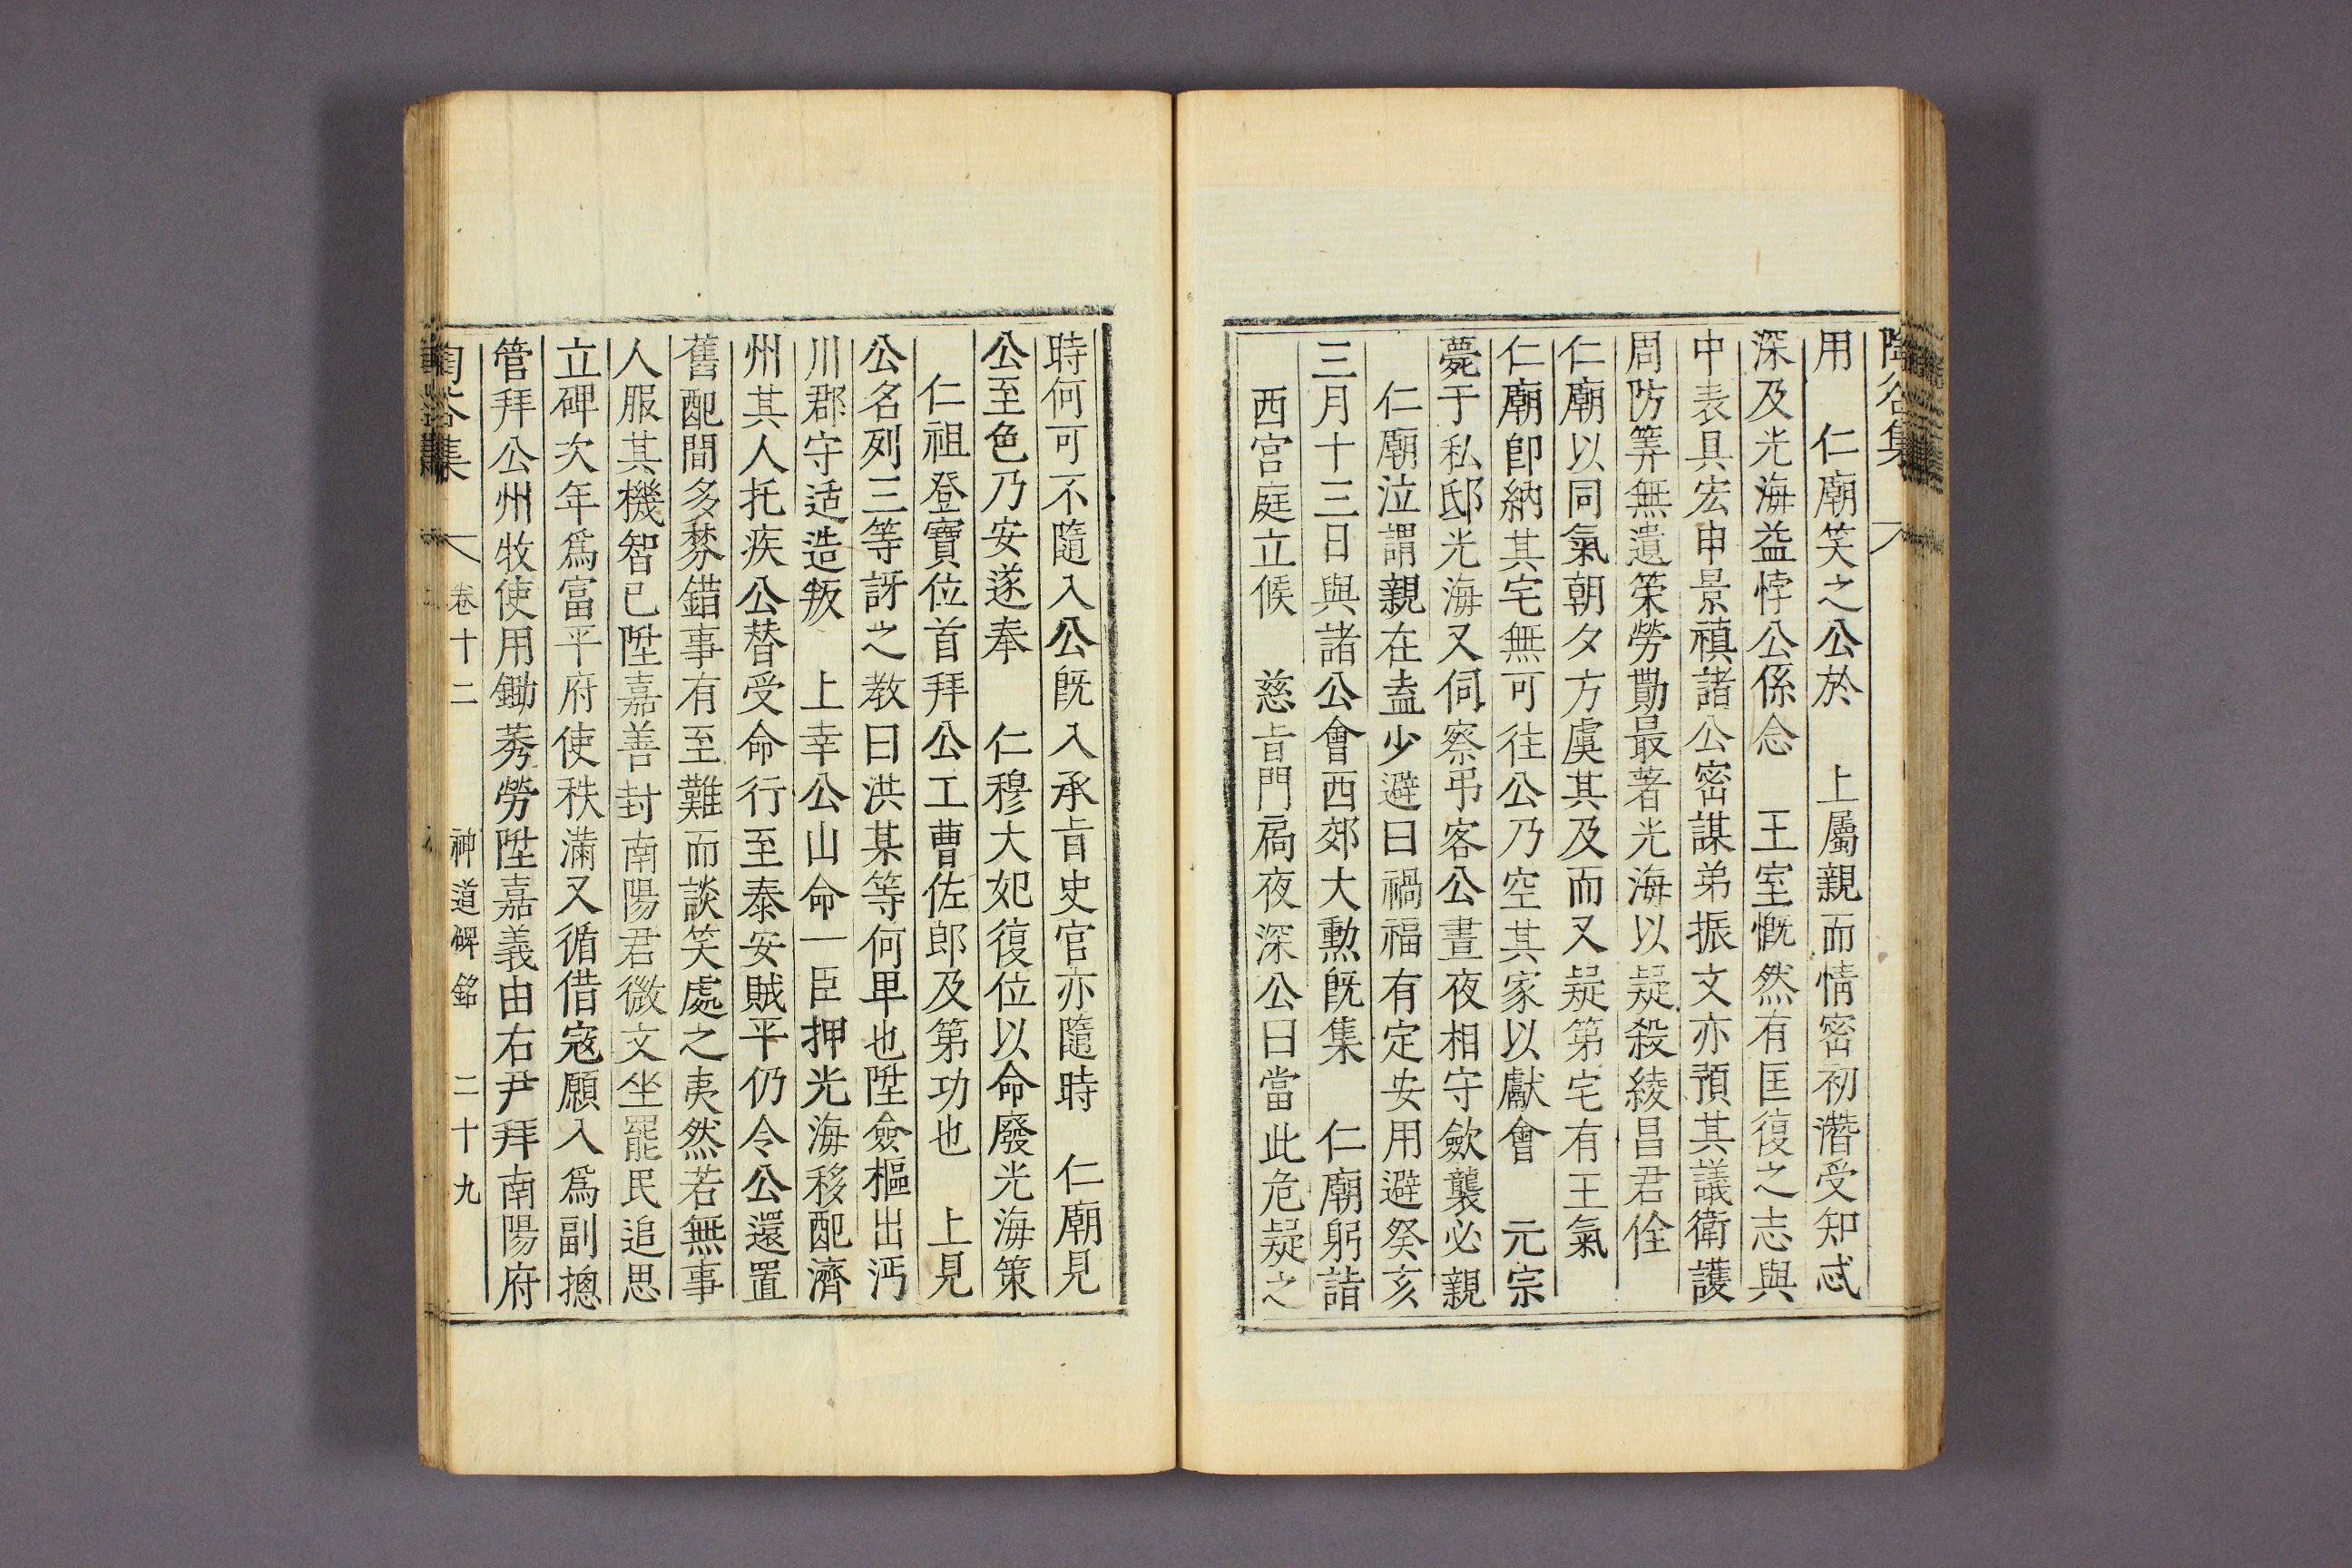 陶谷集
用　仁廟笑之公於　上屬親而情密初潛受知忒
深及光海益悖公係念　王室慨然有匡復之志與
中表具宏申景禛諸公密謀弟振文亦預其議衛護
周防筭無遺策勞勩最著光海以疑殺綾昌君佺
仁廟以同氣朝夕方虞其及而又疑第宅有王氣
仁廟卽納其宅無可往公乃空其家以獻會　元宗
薨于私邸光海又伺察弔客公晝夜相守斂襲必親
仁廟泣謂親在盍少避曰禍福有定安用避癸亥
三月十三日與諸公會西郊大勲旣集　仁廟躬詣
西宮庭立候　慈旨門扃夜深公曰當此危疑之
時何可不隨入公旣入承旨史官亦隨時　仁廟見
公至色乃安遂奉　仁穆大妃復位以命廢光海策
仁祖登寶位首拜公工曹佐郎及第功也　上見
公名列三等訝之教曰洪某等何卑也陞僉樞出沔
川郡守适造叛　上幸公山命一臣押光海移配濟
州其人托疾公替受命行至泰安賊平仍令公還置
舊配間多棼錯事有至難而談笑處之夷然若無事
人服其機智已陞嘉善封南陽君微文坐罷民追思
立碑次年爲富平府使秩滿又循借寇願入爲副摠
管拜公州牧使用鋤莠勞陞嘉義由右尹拜南陽府
陶谷集　卷十二　神道碑銘　二十九